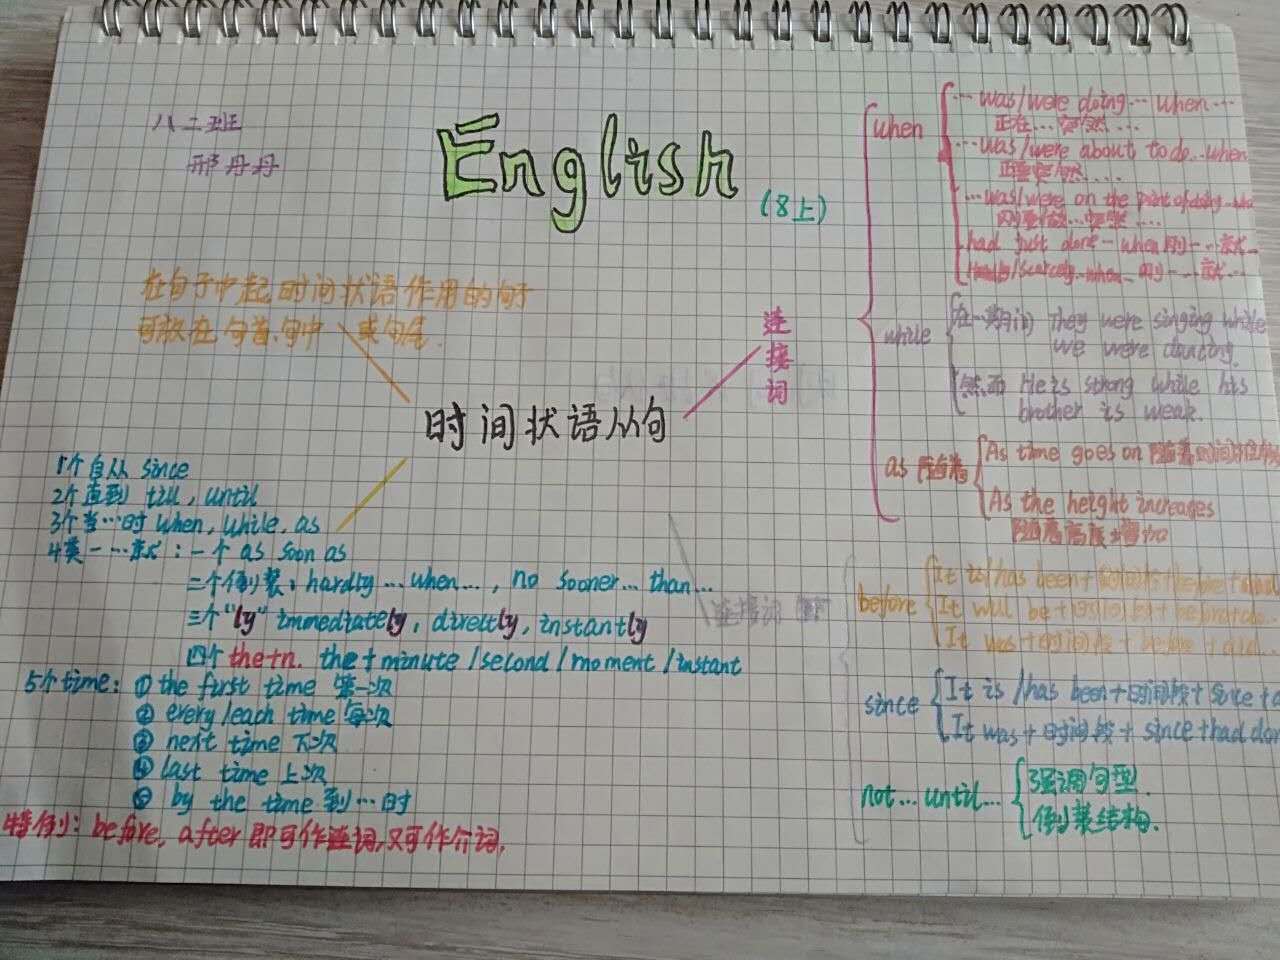 八二班
邢丹丹
English
(8上)
在句子中起时间状语作用的句子
可放在句首、句中 或句尾.
时间状语从句
连接词
1个自从 since
2个直到 till, until
3个当…时 when, while, as
4类一…就: 一个 as soon as
二个倒装: hardly … when…, no sooner… than…
三个"ly" immediately, directly, instantly
四个 the+n. the + minute / second / moment / instant
5个time: ① the first time 第一次
② every/each time 每次
③ next time 下次
④ last time 上次
⑤ by the time 到…时
特例: before, after 即可作连词,又可作介词.
when
… was/were doing … when …
正在…突然…
… was/were about to do … when
正要突然…
… was/were on the point of doing … when
had just done … when 刚一…就…
/scarcely … when … 刚一…就…
while
在…期间 They were singing while
we were dancing.
然而 He is strong while his
brother is weak.
as 随着
As time goes on 随着时间
As the height increases
随着高度增加
before
It is/has been + 时间段 + before +
It will be + 时间段 + before + do…
It was + 时间段 + before + did…
since
It is /has been + 时间段 + since +
It was + 时间段 + since + had don
not … until…
强调句型.
倒装结构.